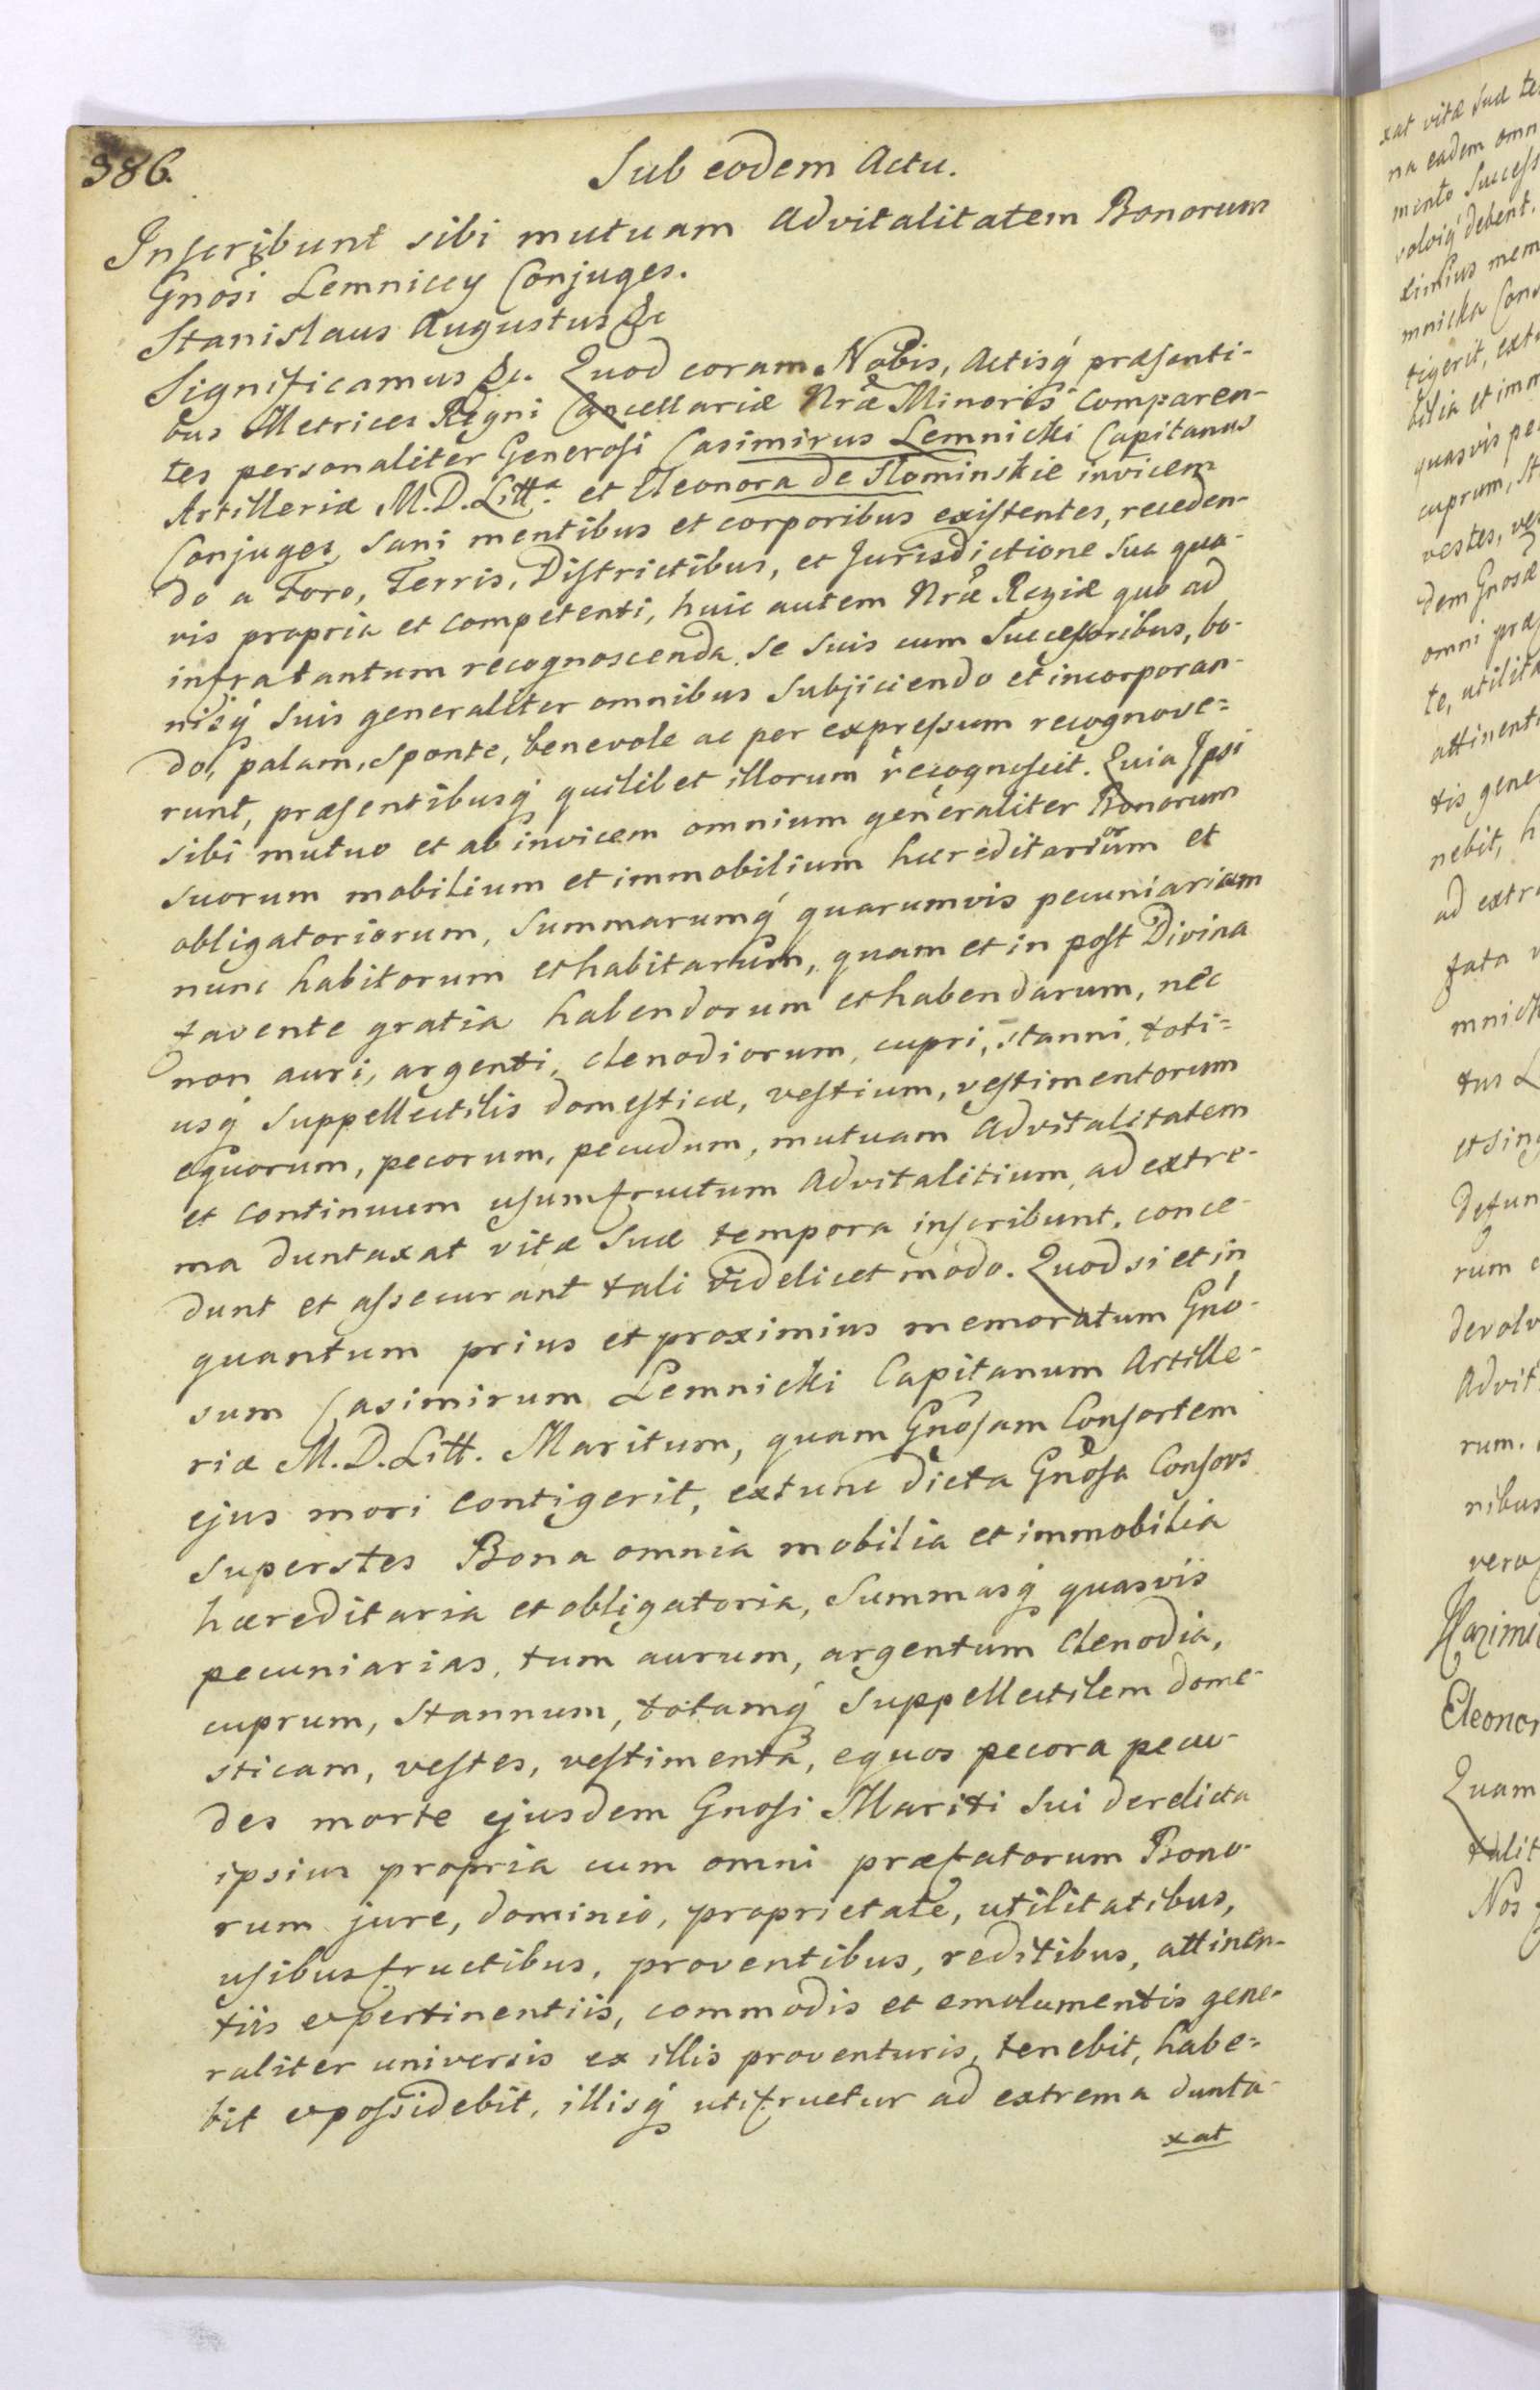 386.
Sub eodem Actu.
Inscribunt sibi mutuam Advitalitatem Bonorum
Gnosi Lemniccy Conjuges.
Stanislaus Augustus &c
Significamus &c. Quod coram Nobis, Actisq́ præsenti-
bus Metrices Regni Cancellariæ Nræ Minoris comparen-
tes personaliter Generosi Casimirus Lemnicki Capitanus
Artilleriæ M.D.Litt.ᵃ et Eleonora de Słominskie invicem
Conjuges, sani mentibus et corporibus existentes, receden-
do a Foro, Terris, Districtibus, et Jurisdictione sua qua-
vis propria et competenti, huic autem Nræ Regiæ quo ad
infratantum recognoscenda, se suis cum successoribus, bo-
nisq́ suis generaliter omnibus subjiciendo et incorporan-
do, palam, sponte, benevole ac per expressum recognove=
runt, præsentibusq́ quilibet illorum recognoscit. Quia Ipsi
sibi mutuo et ab invicem omnium generaliter Bonorum
suorum mobilium et immobilium hæreditariorum et
obligatoriorum, summarumq́ quarumvis pecuniariam
nunc habitorum et habitarum, quam et in post Divina
favente gratia habendorum et habendarum, nec
non auri, argenti, clenodiorum, cupri, stanni, toti=
usq́ suppellectilis domesticæ, vestium, vestimentorum
equorum, pecorum, pecudum, mutuam Advitalitatem
et continuum usumfructum Advitalitium, ad extre-
ma duntaxat vitæ suæ tempora inscribunt, conce-
dunt et assecurant tali videlicet modo. Quod si et in
quantum prius et proximius memoratum Gno-
sum Casimirum Lemnicki Capitanum Artille-
riæ M.D.Litt. Maritum, quam Gnosam Consortem
ejus mori contigerit, extunc dicta Gnosa Consors
superstes Bona omnia mobilia et immobilia
hæreditaria et obligatoria, summasq́ quasvis
pecuniarias, tum aurum, argentum clenodia,
cuprum, stannum, totamq́ suppellectilem dome-
sticam, vestes, vestimenta, equos pecora pecu-
des morte ejusdem Gnosi Mariti sui derelicta
ipsius propria cum omni præfatorum Bono-
rum jure, dominio, proprietate, utilitatibus,
usibusfructibus, proventibus, reditibus, attinen-
tiis et pertinentiis, commodis et emolumentis gene-
raliter universis ex illis proventuris, tenebit, habe=
bit et possidebit, illisq́ utifruetur ad extrema dunta-
xat
xat vitæ suæ te
na eadem omn
mento success
volviq́ debent.
ximius mem
mnicka Cons
tigerit, extu
bilia et imm
quasvis pe
cuprum, st
vestes, ve
dem Gnosæ
omni præ
te, utilita
attinenti
tis gene
nebit, h
ad extre
fata
mnick
tus L
et sing
defun
rum
devolv
Advit
rum.
nibus
vero
Kazimi
Eleonor
Quam
talit
Nos